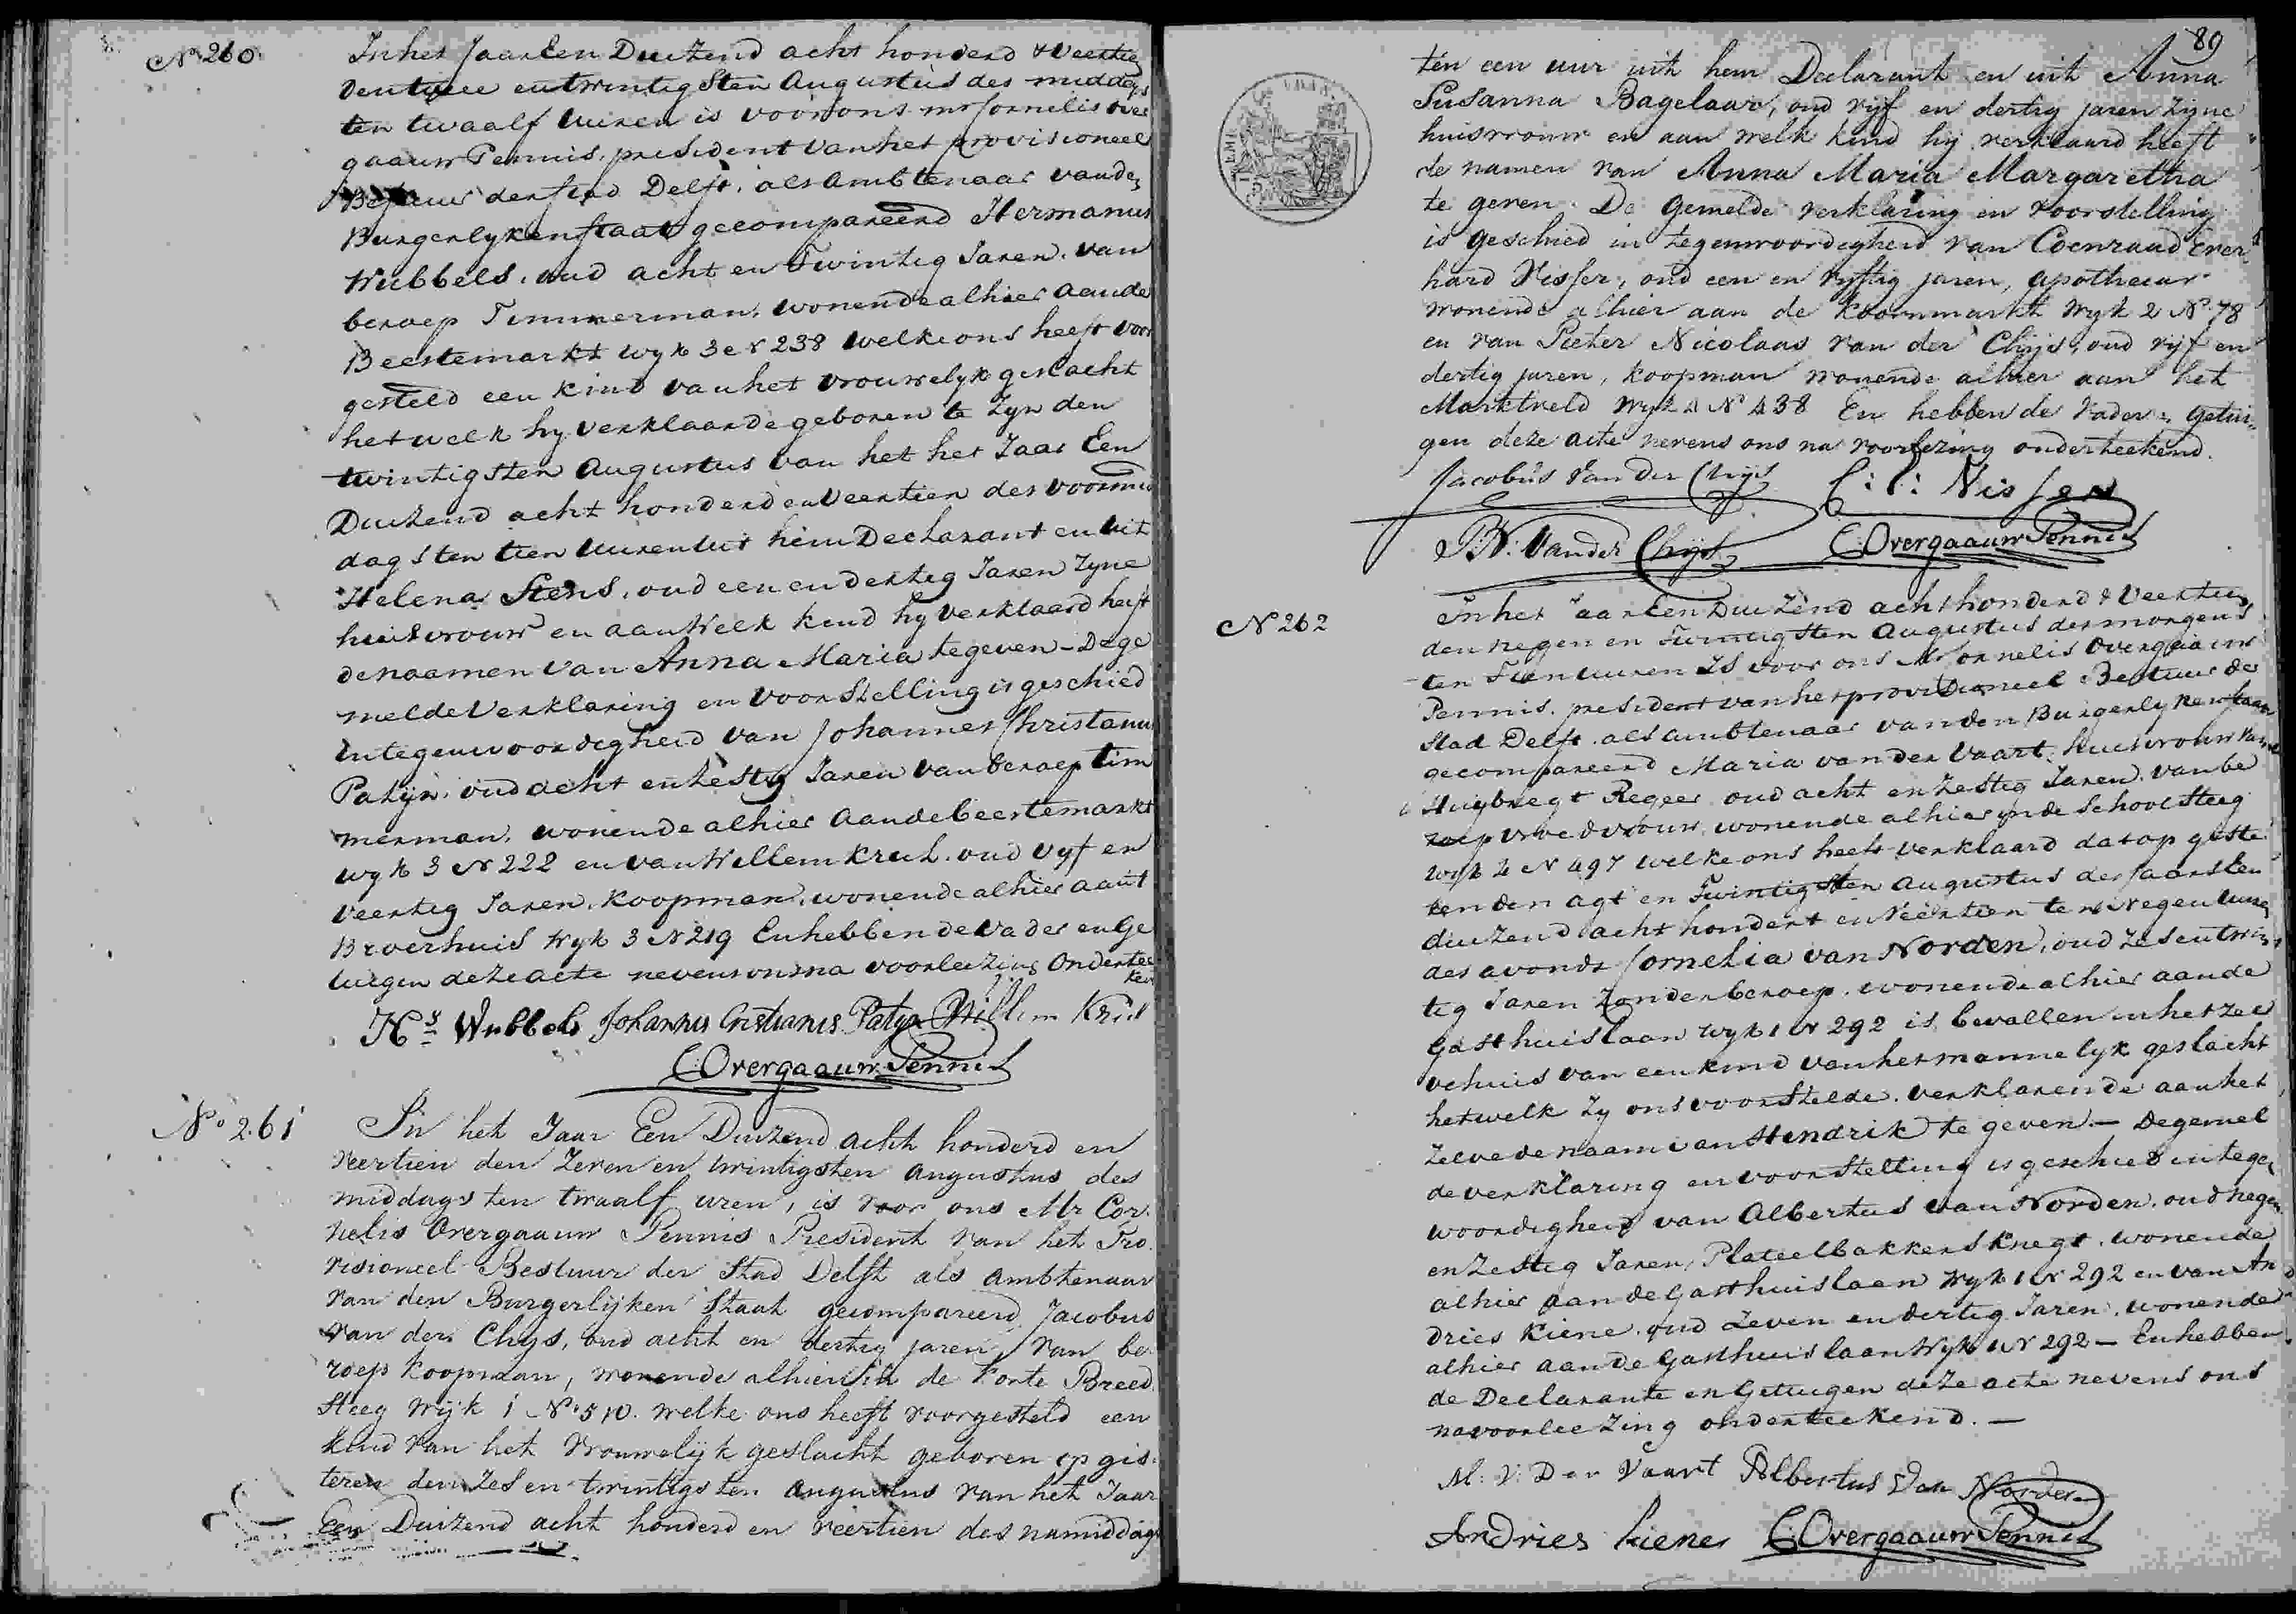 N. 260.
In het Jaar Een Duizend acht honderd & Veertien
den twee en twintigsten Augustus des middags
ten twaalf Uuren is voor ons mr Cornelis over
gaauw Pennis, president van het provisioneel
Bestuur der stad Delft, als Ambtenaar van den
Burgerlyken staat gecompareerd Hermanus
Wubbels, oud acht en Twintig Jaren, van
beroep Timmerman, wonende alhier aan de
Beestemarkt wyk 3 e N 238 welke ons heeft voor
gesteld een Kind van het vrouwelyk geslacht
het welk hy verklaarde geboren te Zyn den
twintigsten Augustus van het het Jaar Een
Duizend acht honderd en Veertien des voormid
dags ten tien Uuren uit hem Declarant en uit
Helena Stens, oud een en dertig Jaren Zyne
huisvrouw en aan Welk kind hy verklaard heeft
de naamen van Anna Maria te geven - De ge
melde Verklaring en voorstelling is geschied
in tegenwoordigheid van Johannes Christianus
Patijn, oud acht en Zestig Jaren van beroep tim
merman, wonende alhier aan de beestemarkt
wyk 3 N 222 en van Willem Krul, oud Vyf en
Veertig Jaren, Koopman, wonende alhier aant
Broerhuis Wyk 3 N 219 En hebben de Vader en Ge
tuigen deze acte nevens ons na voorleezing Ondertee
kend
Hs Wubbels Johannes Cristianus Patijn Willem Krul
C: Overgaauw Pennis
No 261
In het Jaar Een Duizend acht honderd en
veertien den Zeven en twintigsten Augustus des
middags ten twaalf uren, is voor ons Mr Cor-
nelis Overgaauw Pennis President van het Pro-
visioneel Bestuur der Stad Delft als Ambtenaar
van den Burgerlijken Staat gecompareerd Jacobus
van der Chys, oud acht en dertig jaren, van be-
roep koopman, wonende alhier in de Korte Breed
Steeg Wijk 1 No. 510. welke ons heeft voorgesteld een
kind van het Vrouwelijk geslacht geboren op gis-
teren den Zes en twintigsten Augustus van het Jaar
Een Duizend acht honderd en veertien des namiddags
89
ten een uur uit hem Declarant en uit Anna
Susanna Bagelaar, oud vijf en dertig jaren zijne
huisvrouw en aan welk kind hij verklaard heeft
de namen van Anna Maria Margaretha
te geven. De Gemelde verklaring en voorstelling
is geschied in tegenwoordigheid van Coenraad Ever
hard Visser, oud een en vyftig jaren, apothecar
wonende alhier aan de Koornmarkt Wyk 2 No. 78
en van Pieter Nicolaas van der Chijs, oud vijf en
dertig jaren, koopman wonende alhier aan het
Marktveld Wyk 4 No 438 En hebben de Vader & getui-
gen deze acte nevens ons na voorlezing onderteekend.
Jacobus Van Der Chijs C: E: Visser
P: N: Van der Chijs C: Overgaauw Pennis
N 262
In het Jaar Een Duizend acht honderd & Veertien
den negen en Twintigsten Augustus des morgens
ten Tien uuren Is voor ons Mr Cornelis Overgaauw
Pennis, president van het provisioneel Bestuur der
Stad Delft als ambtenaar van den Burgerlyken staat
gecompareerd Maria van der Vaart, huisvrouw van
Huijbregt Regeer oud acht en Zestig Jaren, van be
roep vroedvrouw, wonende alhier in de Schoolsteeg
wyk 4 N 497 welke ons heeft verklaard dat op giste
ren den agt en Twintigsten Augustus des Jaars Een
duizend acht hondert en Veertien ten Negen Uuren
des avonds Cornelia van Norden, oud Zes en twin
tig Jaren Zonder beroep, wonende alhier aan de
Gasthuislaan Wyk 1 N 292 is bevallen in het Zel
ve huis van een kind van het mannelyk geslacht
het welk Zy ons voorstelde, verklarende aan het
Zelve de naam van Hendrik te geven. - De gemel
de verklaring en voorstelling is geschied in tegen
woordigheid van Albertus van Norden, oud negen
en Zestig Jaren, Plateelbakkers Knegt, wonende
alhier aan de Gasthuislaan Wyk 1 N 292 en van An
dries Kiene, oud Zeven en dertig Jaren, wonende
alhier aan de Gasthuislaan Wyk 1 N 292 - En hebben
de Declarante en Getuigen deze acte nevens ons
na voorleezing onderteekend. -
M: V: Der Vaart Albertus Van Norden
Andries kiene C: Overgaauw Pennis